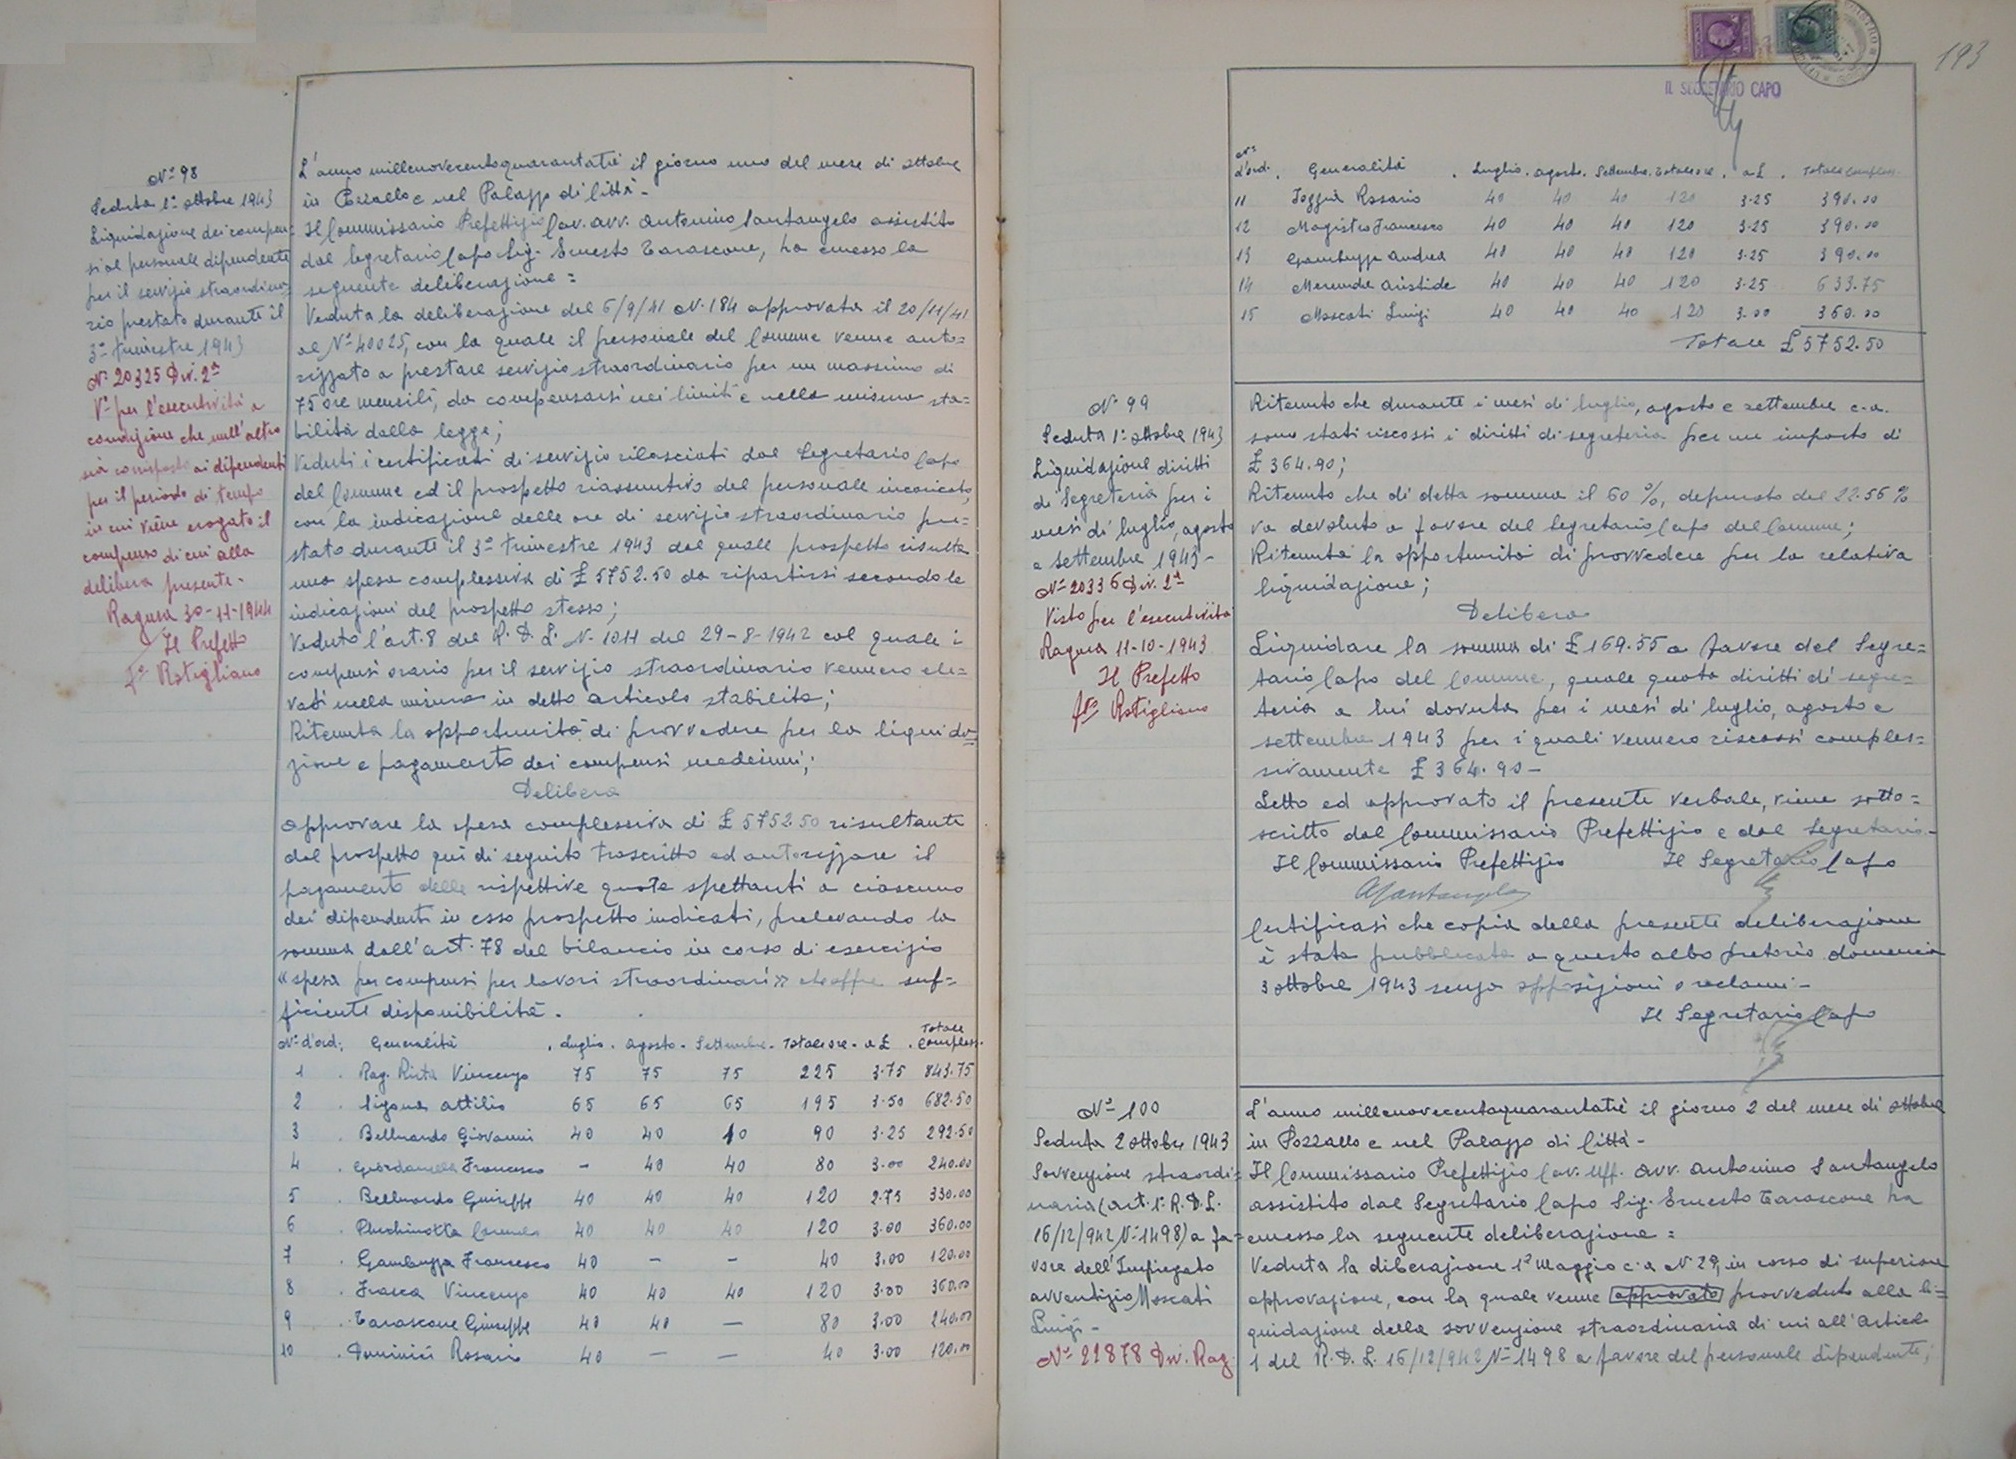 N° 98
Seduta 1° ottobre 1943
Liquidazione dei compen-
si al personale dipendente
per il servizio straordina-
rio prestato durante il
3° trimestre 1943
N. 20325 Div. 2ª
V° per l'esecutività a
condizione che null'altro
sia corrisposto ai dipendenti
per il periodo di tempo
in cui viene erogato il
compenso di cui alla
delibera presente.
Ragusa 30-11-1944
Il Prefetto
f° Rostigliano
L'anno millenovecentoquarantatrè il giorno uno del mese di ottobre
in Pozzallo e nel Palazzo di Città.
Il Commissario Prefettizio Cav. avv. Antonino Santangelo assistito
dal Segretario Capo Sig. Ernesto Tarascone, ha emesso la
seguente deliberazione =
Veduta la deliberazione del 6/9/41 N. 184 approvata il 20/11/41
al N° 40025, con la quale il personale del Comune venne auto=
rizzato a prestare servizio straordinario per un massimo di
75 ore mensili, da compensarsi nei limiti e nella misura sta=
bilita dalla legge;
Veduti i certificati di servizio rilasciati dal Segretario Capo
del Comune ed il prospetto riassuntivo del personale incaricato,
con la indicazione delle ore di servizio straordinario pre=
stato durante il 3° trimestre 1943 dal quale prospetto risulta
una spesa complessiva di £ 5752.50 da ripartirsi secondo le
indicazioni del prospetto stesso;
Veduto l'art. 8 del R. D. L. N. 1011 del 29-8-1942 col quale i
compensi orario per il servizio straordinario vennero ele=
vati nella misura in detto articolo stabilita;
Ritenuta la opportunità di provvedere per la liquida=
zione e pagamento dei compensi medesimi;
Delibera
Approvare la spesa complessiva di £ 5752.50 risultante
dal prospetto qui di seguito trascritto ed autorizzare il
pagamento delle rispettive quote spettanti a ciascuno
dei dipendenti in esso prospetto indicati, prelevando la
somma dall'art. 78 del bilancio in corso di esercizio
«spesa per compensi per lavori straordinari» che offre suf=
ficiente disponibilità.
N° d'ord. Generalità Luglio Agosto Settembre Totale ore a £ Totale compless.
1 Rag. Rinta Vincenzo 75 75 75 225 3.75 843.75
2 Sigona Attilio 65 65 65 195 3.50 682.50
3 Belluardo Giovanni 40 40 10 90 3.25 292.50
4 Giordanella Francesco - 40 40 80 3.00 240.00
5 Belluardo Giuseppe 40 40 40 120 2.75 330.00
6 Pluchinotta Carmelo 40 40 40 120 3.00 360.00
7 Gambuzza Francesco 40 - - 40 3.00 120.00
8 Frasca Vincenzo 40 40 40 120 3.00 360.00
9 Tarascone Giuseppe 40 40 - 80 3.00 240.00
10 Dominici Rosario 40 - - 40 3.00 120.00
193
IL SEGRETARIO CAPO
N° d'ord. Generalità Luglio Agosto Settembre Totale ore a £ Totale compless.
11 Rosario 40 40 40 120 3.25 390.00
12 Magistro Francesco 40 40 40 120 3.25 390.00
13 Gambuzza Andrea 40 40 40 120 3.25 390.00
14 Merenda Aristide 40 40 40 120 3.25 633.75
15 Moscati Luigi 40 40 40 120 3.00 360.00
Totale £ 5752.50
N° 99
Seduta 1° ottobre 1943
Liquidazione diritti
di Segreteria per i
mesi di luglio, agosto
e settembre 1943-
N° 20336 Div. 2ª
Visto per l'esecutività
Ragusa 11-10-1943
Il Prefetto
f° Rostigliano
Ritenuto che durante i mesi di luglio, agosto e settembre c.a.
sono stati riscossi i diritti di segreteria per un importo di
£ 364.90;
Ritenuto che di detta somma il 60 %, depurato del 22.56 %
va devoluto a favore del Segretario Capo del Comune;
Ritenuta la opportunità di provvedere per la relativa
liquidazione;
Delibera
Liquidare la somma di £ 169.55 a favore del Segre=
tario Capo del Comune, quale quota diritti di segre=
teria a lui dovuta per i mesi di luglio, agosto e
settembre 1943 per i quali vennero riscossi comples=
sivamente £ 364.90-
Letto ed approvato il presente verbale, viene sotto=
scritto dal Commissario Prefettizio e dal Segretario-
Il Commissario Prefettizio Il Segretario Capo
ASantangelo
Certificasi che copia della presente deliberazione
è stata pubblicata a questo albo pretorio domenica
3 ottobre 1943 senza opposizioni o reclami-
Il Segretario Capo
N° 100
Seduta 2 ottobre 1943
Sovvenzione straordi=
naria (art. 1° R. D. L.
16/12/942 N° 1498) a fa=
vore dell'Impiegato
avventizio Moscati
Luigi-
N° 21878 Div. Rag.
L'anno millenovecentoquarantatrè il giorno 2 del mese di ottobre
in Pozzallo e nel Palazzo di Città-
Il Commissario Prefettizio Cav. Uff. avv. Antonino Santangelo
assistito dal Segretario Capo Sig. Ernesto Tarascone ha
emesso la seguente deliberazione =
Veduta la diberazione 1° Maggio c.a N 29, in corso di superiore
approvazione, con la quale venne approvato provveduto alla li=
quidazione della sovvenzione straordinaria di cui all'Articolo
1 del R. D. L. 16/12/942 N° 1498 a favore del personale dipendente;